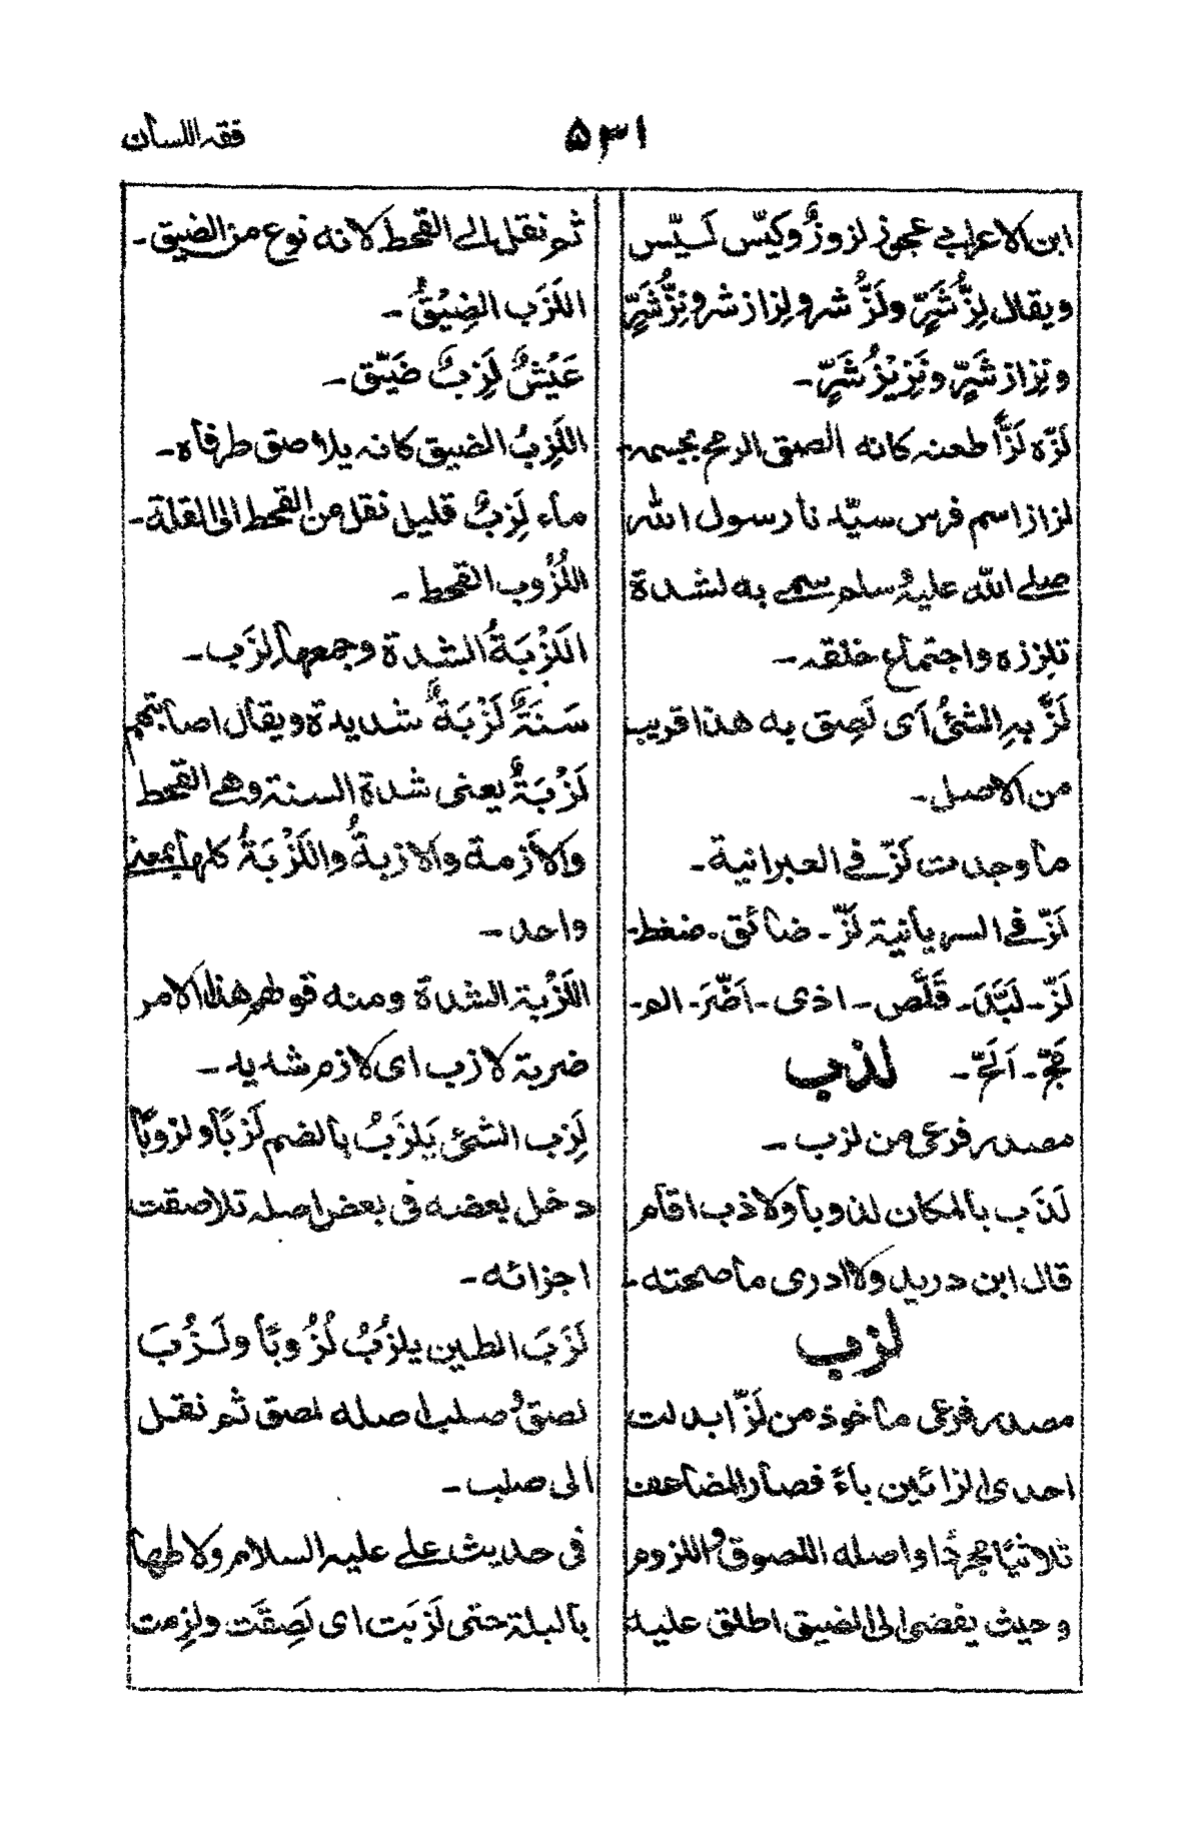 فقه اللسان
۵۳۱
ابن الاعرابي عجوز لزوزٌ وكيّس لَسيّس
ويقال لِزُّ شَرٍّ ولَزُّ شر ولِزاز شر ونِزُّ شَرٍّ
ونِزاز شَرٍّ ونَزِيْزُ شَرٍّ ـ
لَزّه لَزًّا طعنه كانه الصق الرمح بجسمه ـ
لزاز اسم فرس سيّدنا رسول الله
صلے الله عليه وسلم سمے به لشدة
تلززه واجتماع خلقه ـ
لَزَّ بهِ الشئُ اَى لَصِق به هذا قريب
من الاصل ـ
ما وجدت لَزّ فے العبرانية ـ
لَزّ فے السريانية لَزّ ـ ضائق ـ ضغط ـ
لَزّ ـ لَبَّدَ ـ قَلَّص ـ اذى ـ اَضَّرَ ـ الم ـ
لَجّ ـ اَلَحّ ـ
لذب
مصدر فرعى من لزب ـ
لَذَب بالمكان لذوبا ولاذب اقام
قال ابن دريد ولا ادرى ما صحته ـ
لزب
مصدر فرعى ماخوذ من لَزّ ابدلت
احدى الزائين باءً فصار المضاعف
ثلاثيا مجردا واصله اللصوق واللزوم
وحيث يفضى الى الضيق اطلق عليه
ثم نقل الى القحط لانه نوع من الضيق ـ
اللَزَب الضِيْقُ ـ
عَيْشٌ لَزِبٌ ضَيّق ـ
اللَزِبُ الضيق كانه يلاصق طرفاه ـ
ماء لَزِبٌ قليل نقل من القحط الى القلة ـ
اللُزُوب القحط ـ
اللَزْبَةُ الشدة وجمعها لِزَب ـ
سَنَةٌ لَزْبَةٌ شديدة ويقال اصابتهم
لَزْبَةٌ يعنى شدة السنة وهے القحط
والأزمة والازبةُ واللَزْبَةُ كلها بمعنے
واحد ـ
اللَزْبة الشدة ومنه قولهم هذا الامر
ضربة لازب اى لازم شديد ـ
لَزِب الشئ يَلزَبُ بالضم لَزبًا ولزوبًا
دخل بعضه فى بعض اصله تلاصقت
اجزائه ـ
لَزَبَ الطين يلزُبُ لُزُوبًا ولَزُبَ
لصق وصلب اصله لصق ثم نقل
الى صلب ـ
فى حديث علے عليه السلام ولاطها
بالبلة حتى لَزبَت اى لَصِقَت ولزِمت